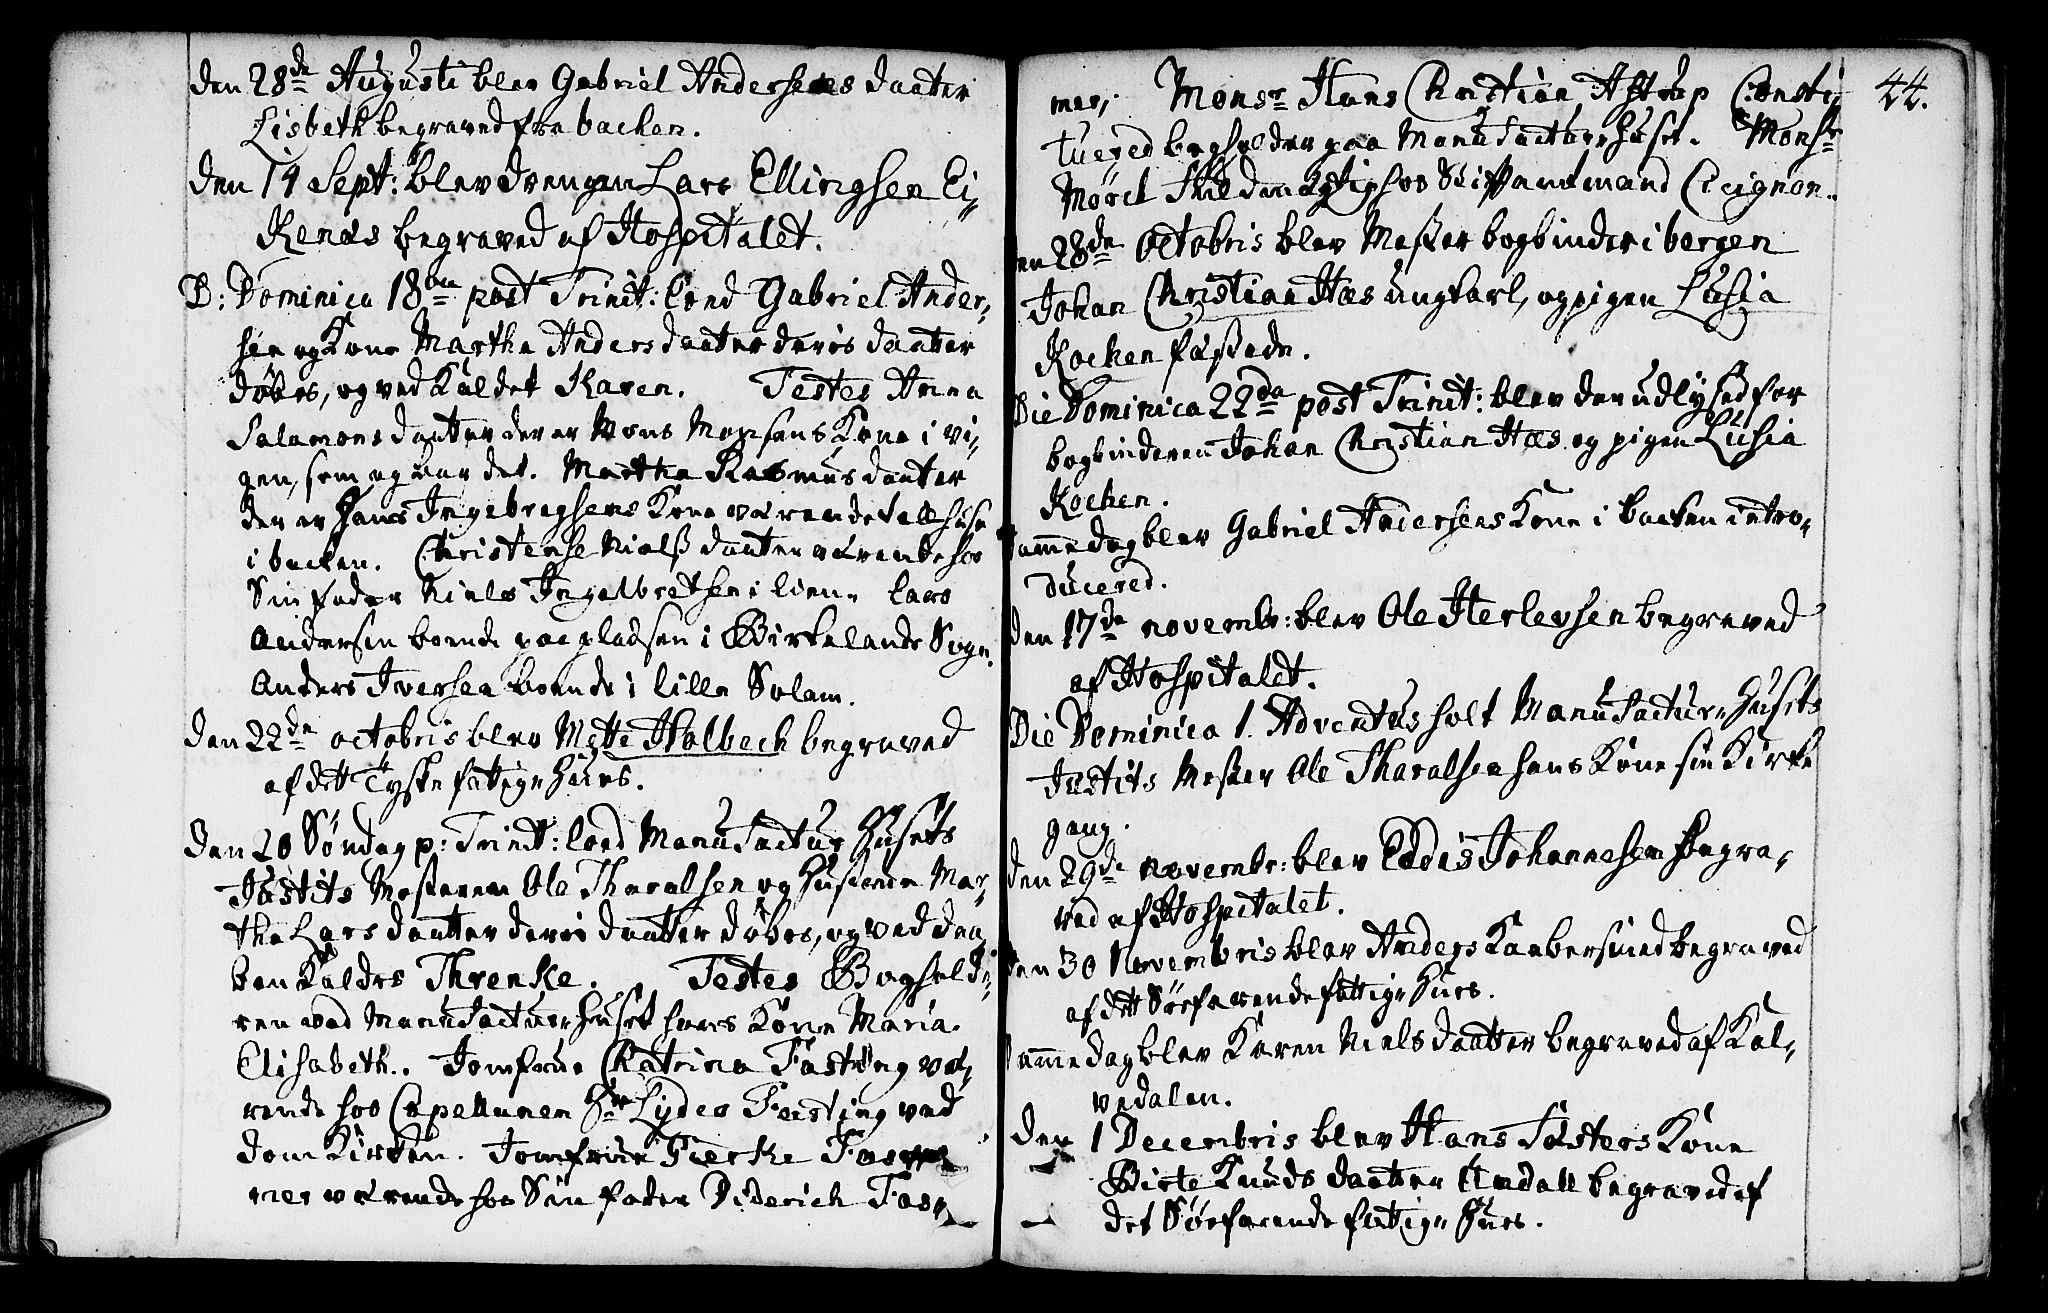 den 28de Augusti blev Gabriel Andersens daatter
Lisbeth begraved fra backen.
den 14 Sept: blev drengen Lars Ellingsen Ei-
Kenæs begraved af Hospitalet.
D: Dominica 18va post Trinit: lod Gabriel Ander-
sen og Kone Martha Anders daatter deris daatter
døbes, og ved Kaldet Karen. Testes Anna
Salamons daatter der er Mons Monsens Kone i Vi-
gen, som og bar det. Martha Rasmus daatter
der er Hans Ingebregsens Kone værende til Huse
i backen. Christense Niels daatter værende hos
Sin fader Niels Ingelbretsen i lien. Lars
Andersen boende paa pladsen i Birkelands Sogn.
Anders Iversen boende i lille Solem.
den 22de octobris blev Mette Holbech begraved
af dett Tyske fattige Huus.
den 20 Søndag p: Trinit: lod Manufactur Husets
Justits Mesteren Ole Tharalsen og Hustrue Mar-
tha Lars daatter deris daatter døbes, og ved daa-
ben Kaldes Threnke. Testes Bogholde-
ren ved Manufactur Huset hans Kone Maria
Elisabeth. Jomfrue Chatrina Fasting væ-
rende hos Capellanen Hr Lyder Fasting ved
dom Kirken. Jomfrue Fierke Fas-
mer værende hos Sin fader Diderich Fas-
44.
mer, Monsr Hans Christian Astrup Consti-
tuered bogholder paa Manufactur Huset. Monsr
Mørch Skildvagtig hos Stiftamtmand Cicignon.
den 28de octobris blev Mester bogbinder i bergen
Johan Christian Hæs ungkarl, og pigen Lusia
Kochen fæstede.
Die Dominica 22da post Trinit: blev der udlyst for
bogbinderen Johan Christian Hæs og pigen Lusia
Kochen.
Samme dag blev Gabriel Andersens Kone i backen intro-
ducered.
den 17de novembr: blev Ole Herlevsen begraved
af Hospitalet.
Die Dominica 1. Adventus holt Manufactur Husets
Justits Mester Ole Tharalsen hans Kone sin Kirke
gang.
den 29de novembr: blev Eddis Johannesen begra-
ved af Hospitalet.
den 30 Novembris blev Anders Kaabersmed begraved
af dett Søefarende fattige Huus.
Samme dag blev Karen Niels daatter begraved af Kal-
vedalen.
den 1 Decembris blev Hans Fusters Kone
Birte Knuds daatter Undall begraved af
det Søefarende fattige Huus.